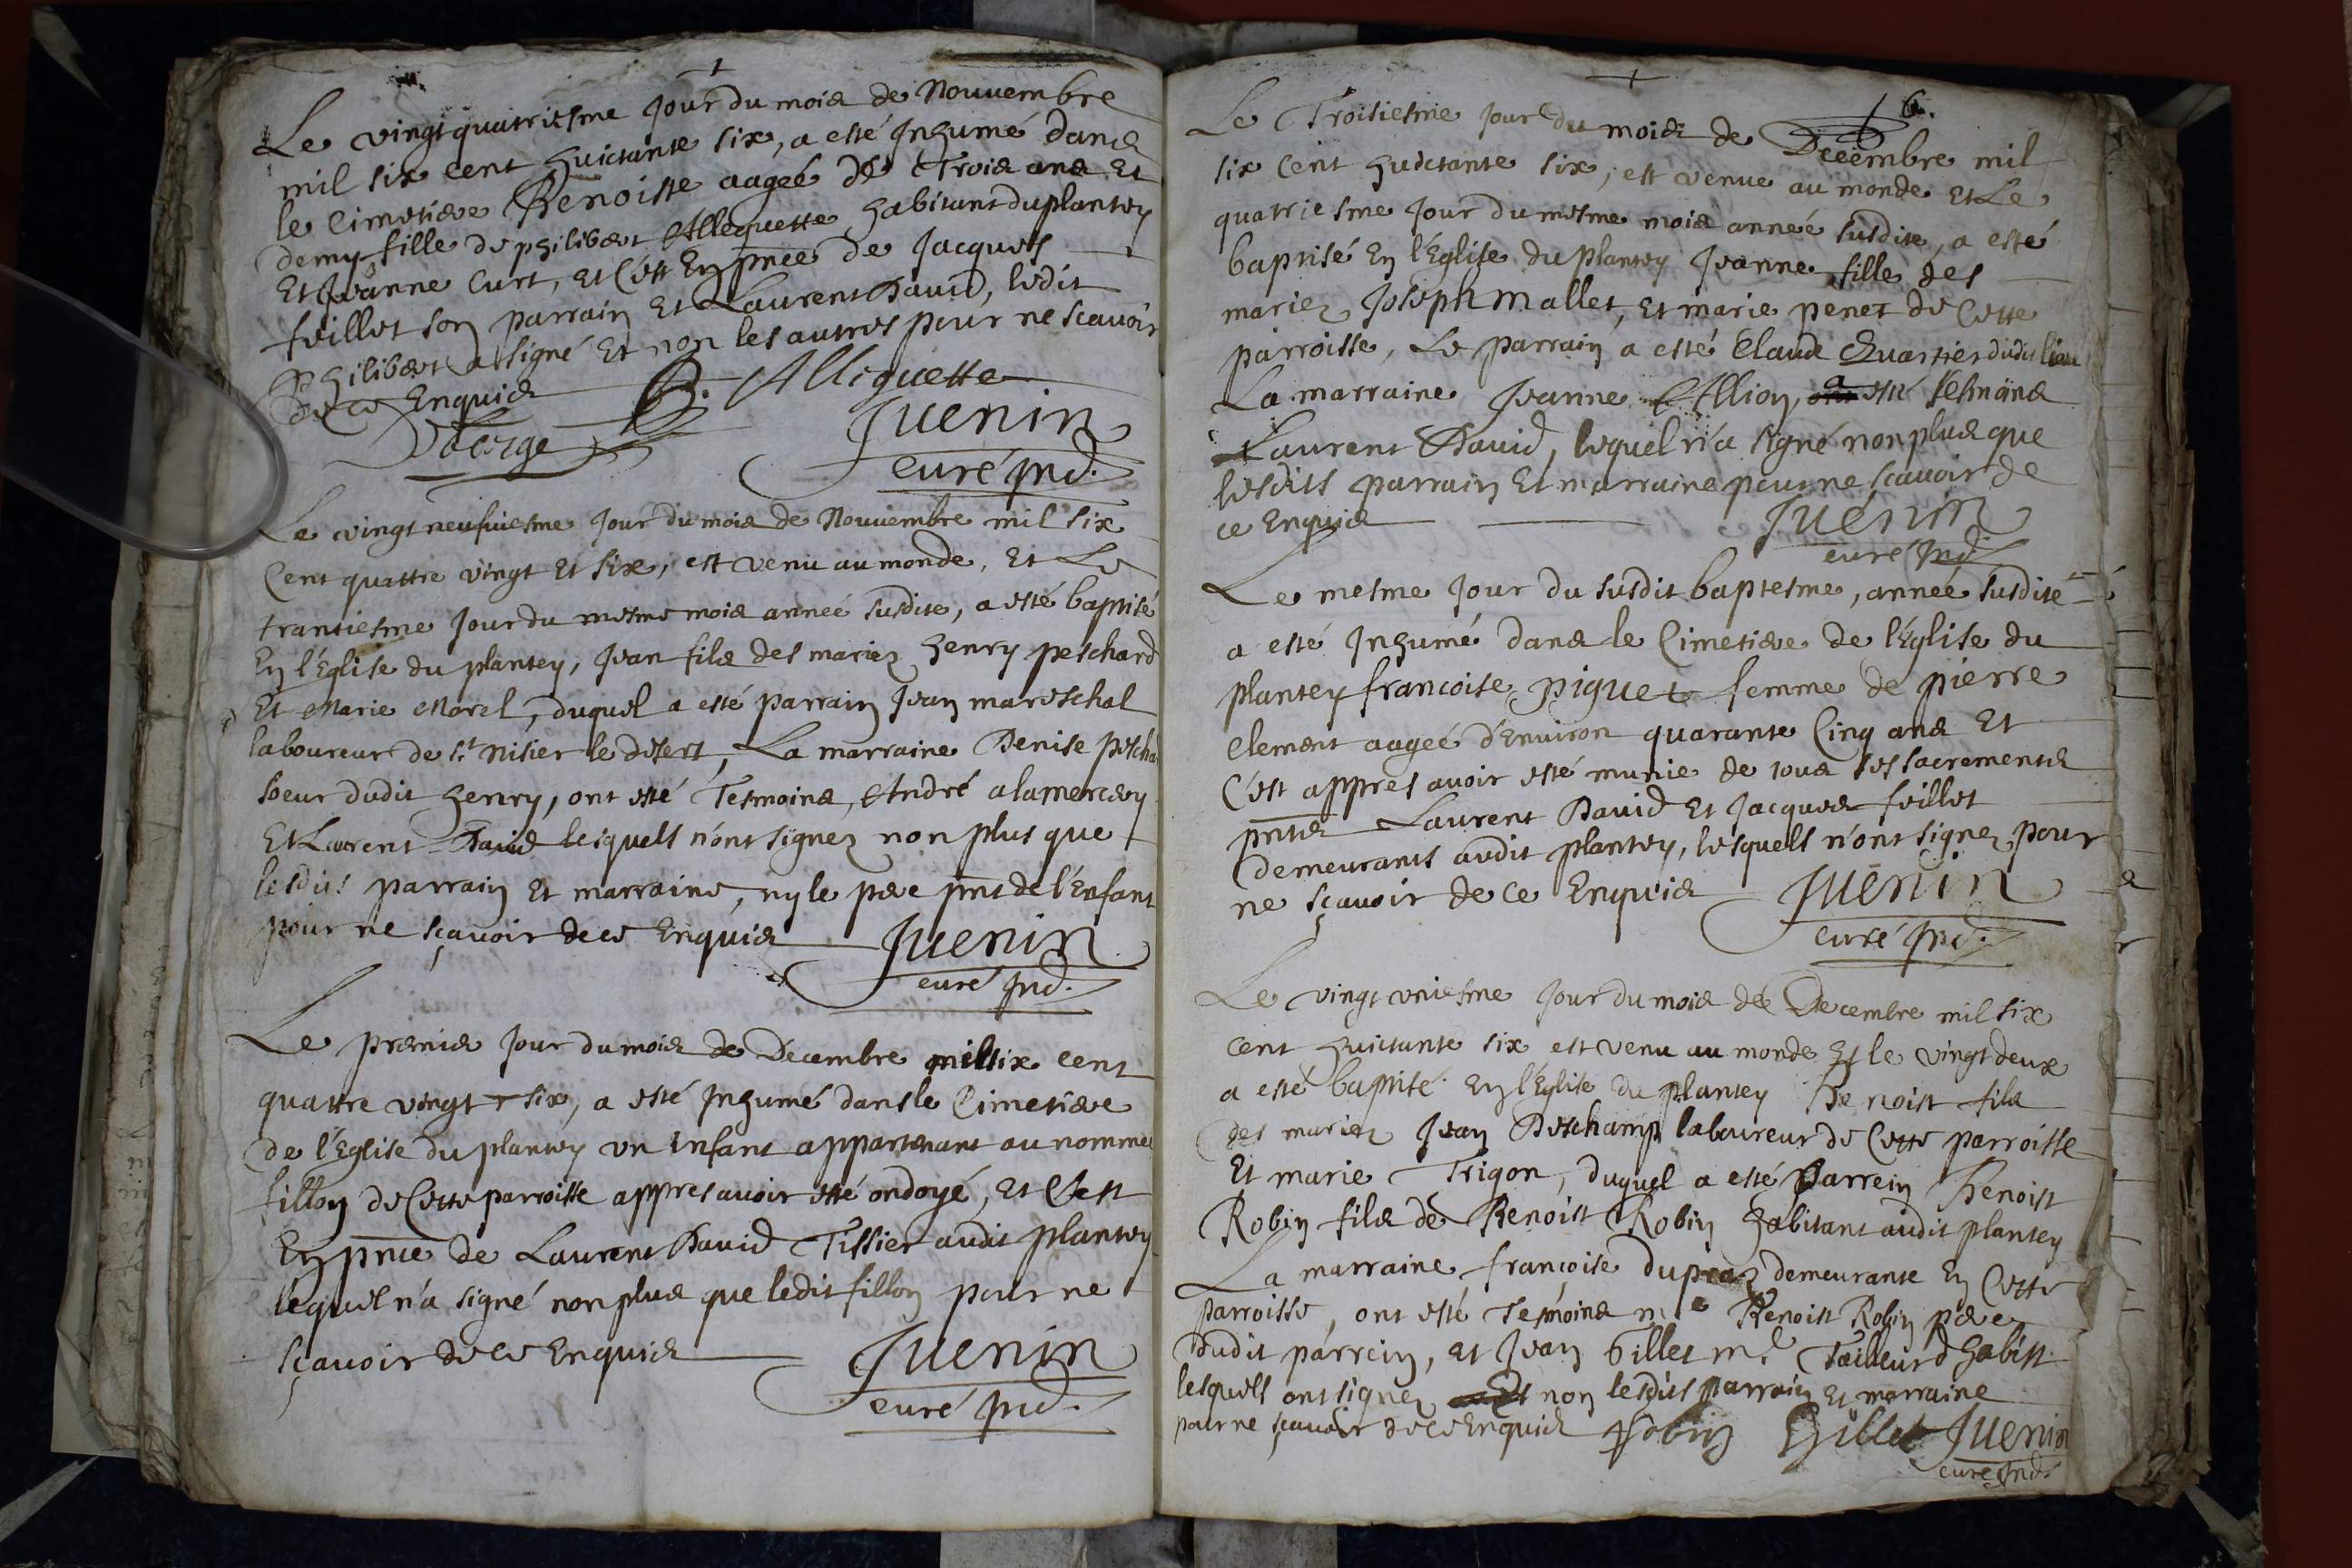 Le vingtquatriesme Jour du mois de Nouvembre
mil six cent huictante six, a esté Inhumé dans
le Cimetiere Benoiste aageé de Trois ans Et
demy fille de philibert Alleguette habitant du plantey
Et Jeanne Curt, et C'est En pnce de Jacques
feillet son parrain Et Laurent David, ledit
philibert a signé Et non les autres pour ne scavoir
de ce Enquis P. Alliguette
Juenin
curé Ind.
Le vingt neufuiesme Jour du mois de Nouuembre mil six
Cent quattre vingt Et six, est venu au monde, Et Le
trantiesme Jour du mesme mois anneé susdite, a esté baptisé
En l'Eglise du plantey, Jean fils des mariez henry peschard
Et Marie Morel, duquel a esté parrain Jean mareschal
laboureur de st Nisier le desert, La marraine Denise pescha
soeur dudit henry, ont esté Tesmoins, André alamercery
Et Laurent David lesquels n'ont signez non plus que
lesdits parrain Et marraine, ny le pere pnt de l'Enfant
pour ne sçavoir de ce Enquis Juenin
curé Ind.
Le premier Jour du mois de Decembre mil six cent
quattre vingt six, a esté Inhumé dans le Cimetiere
de l'Eglise du plantey un Enfant appartenant au nommé
fillon de Cette parroisse appres avoir esté ondoyé, et C'est
En pnce de Laurent David Tissier audit plantey
lequel n'a signé non plus que ledit fillon pour ne
sçavoir de ce Enquis Juenin
curé Ind.
6.
Le Troisiesme Jour du mois de Decembre mil
six Cent huictante six, est venue au monde Et Le
quatriesme Jour du mesme mois anneé susdite, a esté
baptisé En l'Eglise du plantey Jeanne fille des
mariez Joseph Mallet, Et marie penet de Cette
parroisse, Le parrain a esté Claude Chuartier dudit lieu
La marraine Jeanne Allion, a esté Tesmoins
Laurent David, lequel n'a signé non plus que
lesdits parrain Et marraine pour ne scavoir de
ce Enquis Juenin
curé Ind.
Le mesme Jour du susdit baptesme, anneé susdite
a esté Inhumé dans le Cimetiere de l'Eglise du
plantey francoise piguet femme de pierre
Clement aageé d'Environ quarante Cinq ans Et
C'est appres avoir esté munie de tous ses sacrements
pnts Laurent David Et Jacques feillet
demeurants audit plantey, lesquels n'ont signez pour
ne sçavoir de ce Enquis Juenin
curé Ind.
Le vingt uniesme Jour du mois de Decembre mil six
cent huictante six est venu au monde Et le vingt deux
a esté baptisé En l'Eglise du plantey Benoist fils
des mariez Jean Deschamp laboureur de Cette parroisse
Et marie Trigon, duquel a esté Parrein Benoist
Robin fils de Benoist Robin habitant audit plantey
La marraine françoise dupraz demeurante En Cette
parroisse, ont esté Tesmoins me Benoist Robin pere
dudit parrein, et Jean Gillet me Tailleur d'habist
lesquels ont signez non lesdits parrain Et marraine
pour ne sçavoir de ce Enquis Robin Gillet Juenin
curé Ind.